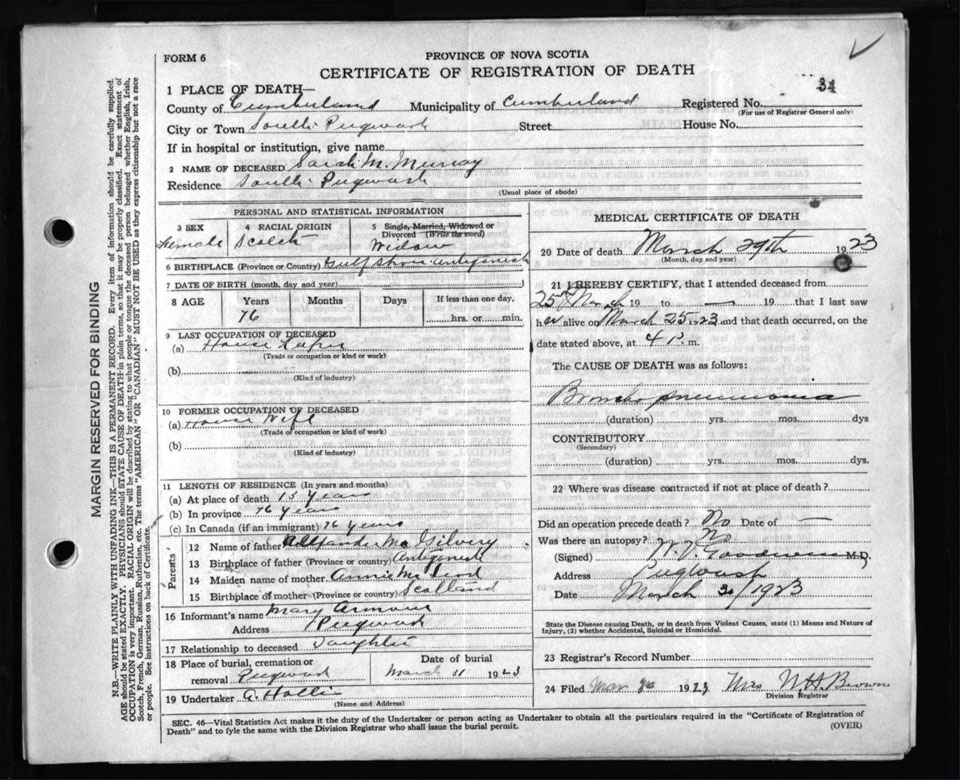 FORM 6
PROVINCE OF NOVA SCOTIA
CERTIFICATE OF REGISTRATION OF DEATH
34
1 PLACE OF DEATH—
County of Cumberland Municipality of Cumberland Registered No.
(For use of Registrar General only)
City or Town South Pugwash Street House No.
If in hospital or institution, give name
2 NAME OF DECEASED Sarah M. Murray
Residence South Pugwash
(Usual place of abode)
PERSONAL AND STATISTICAL INFORMATION
3 SEX
Female
4 RACIAL ORIGIN
Scotch
5 Single, Married, Widowed or
Divorced (Write the word)
Widow
6 BIRTHPLACE (Province or Country) Gulf Shore Antigonish
7 DATE OF BIRTH (month, day and year)
8 AGE Years Months Days If less than one day,
76 hrs. or min.
9 LAST OCCUPATION OF DECEASED
(a) House Keeper
(Trade or occupation or kind or work)
(b)
(Kind of industry)
10 FORMER OCCUPATION OF DECEASED
(a) House Wife
(Trade or occupation or kind of work)
(b)
(Kind of industry)
11 LENGTH OF RESIDENCE (In years and months)
(a) At place of death 13 years
(b) In province 76 years
(c) In Canada (if an immigrant) 76 years
Parents
12 Name of father Alexander McGilvery
13 Birthplace of father (Province or country) Antigonish
14 Maiden name of mother Annie McLeod
15 Birthplace of mother (Province or country) Scotland
16 Informant's name Mary Armour
Address Pugwash
17 Relationship to deceased Daughter
18 Place of burial, cremation or
removal Pugwash
Date of burial
March 31 1923
19 Undertaker A. Hollis
(Name and Address)
MEDICAL CERTIFICATE OF DEATH
20 Date of death March 29th 1923
(Month, day and year)
21 I HEREBY CERTIFY, that I attended deceased from
25th March 19 to — 19 that I last saw
her alive on March 25 1923 and that death occurred, on
the date stated above, at 4 P. m.
The CAUSE OF DEATH was as follows:
Broncho pneumonia
(duration) yrs. mos. dys
CONTRIBUTORY
(Secondary)
(duration) yrs. mos. dys.
22 Where was disease contracted if not at place of death?
Did an operation precede death? No Date of —
Was there an autopsy? No
(Signed) Goodwin M.D.
Address Pugwash
Date March 30/1923
State the Disease causing Death, or in death from Violent Causes, state (1) Means and Nature of
Injury, (2) whether Accidental, Suicidal or Homicidal.
23 Registrar's Record Number
24 Filed Mar 30 1923 Mrs W.H. Brown
Division Registrar
SEC. 46—Vital Statistics Act makes it the duty of the Undertaker or person acting as Undertaker to obtain all the particulars required in the "Certificate of Registration of
Death" and to fyle the same with the Division Registrar who shall issue the burial permit.
(OVER)
MARGIN RESERVED FOR BINDING
N.B.—WRITE PLAINLY WITH UNFADING INK—THIS IS A PERMANENT RECORD. Every item of information should be carefully supplied.
AGE should be stated EXACTLY. PHYSICIANS should STATE CAUSE OF DEATH in plain terms, so that it may be properly classified. Exact statement of
OCCUPATION is very important. RACIAL ORIGIN will be described by stating to what people or tongue the deceased person belonged whether English, Irish,
Scotch, French, German, Russian, Ruthenian, etc. The terms "AMERICAN" OR "CANADIAN" MUST NOT BE USED as they express citizenship but not a race
or people. See instructions on back of Certificate.